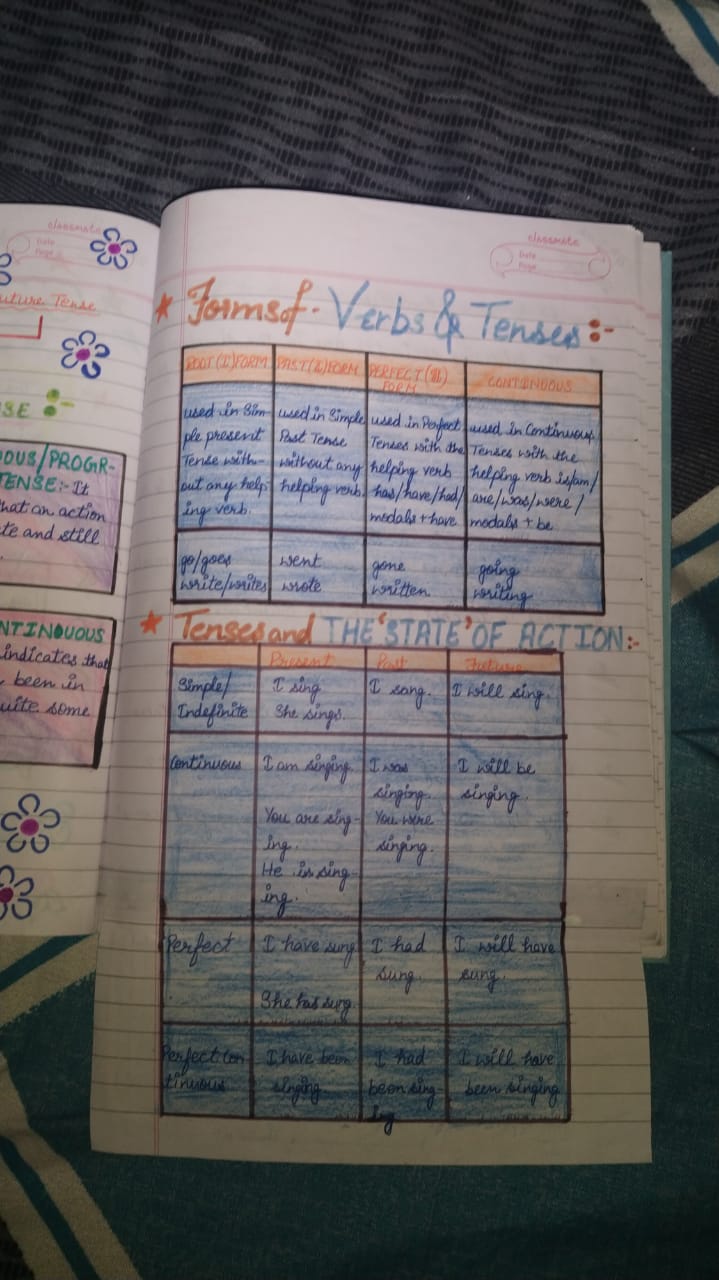 classmate
Date
Page
uture Tense
SE :-
OUS/PROGR-
TENSE:- It
hat an action
te and still
NTINUOUS
indicates that
been in
uite some
classmate
Date
Page
★ Forms of Verbs & Tenses :-
ROOT (I) FORM PAST (2) FORM PERFECT (III) FORM CONTINUOUS
used in Sim
ple present
Tense with-
out any help
ing verb.
used in Simple
Past Tense
without any
helping verb.
used in Perfect
Tenses with the
helping verb
has/have/had/
modals + have
used in Continuous
Tenses with the
helping verb is/am/
are/was/were/
modals + be
go/goes
write/writes
went
wrote
gone
written
going
writing
★ Tenses and THE 'STATE' OF ACTION:-
Present Past Future
Simple/
Indefinite
I sing
She sings.
I sang.
I will sing.
Continuous
I am singing.
You are sing-
ing.
He is sing-
ing.
I was
singing.
You were
singing.
I will be
singing.
Perfect
I have sung
She has sung.
I had
sung.
I will have
sung.
Perfect Con
tinuous
I have been
singing.
I had
been sing-
ing
I will have
been singing